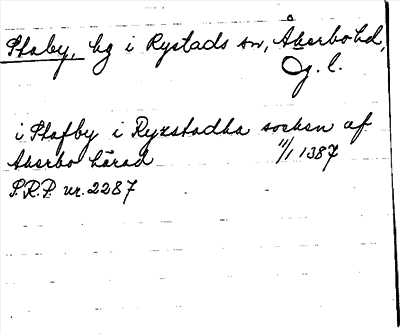 Staby, hg i Rystads sn, Åkerbo hd,
Ög. l.
i Stafby i Ryzstadha socken af
Akerbo härad 11/1 1387
S.R.P. nr. 2287